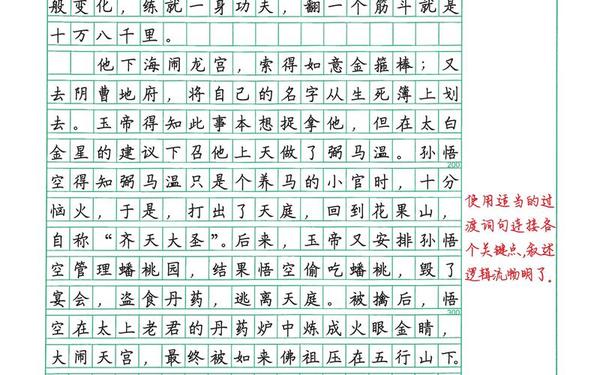 般变化，练就一身功夫，翻一个筋斗就是
十万八千里。
他下海闹龙宫，索得如意金箍棒；又
去阴曹地府，将自己的名字从生死簿上划
去。玉帝得知此事本想捉拿他，但在太白
金星的建议下召他上天做了弼马温。孙悟
200
空得知弼马温只是个养马的小官时，十分
恼火，于是，打出了天庭，回到花果山，
自称“齐天大圣”。后来，玉帝又安排孙悟
空管理蟠桃园，结果悟空偷吃蟠桃，毁了
宴会，盗食丹药，逃离天庭。被擒后，悟
300
空在太上老君的丹药炉中炼成火眼金睛，
大闹天宫，最终被如来佛祖压在五行山下。
使用适当的过
渡词句连接各
个关键点，叙述
逻辑流畅明了。